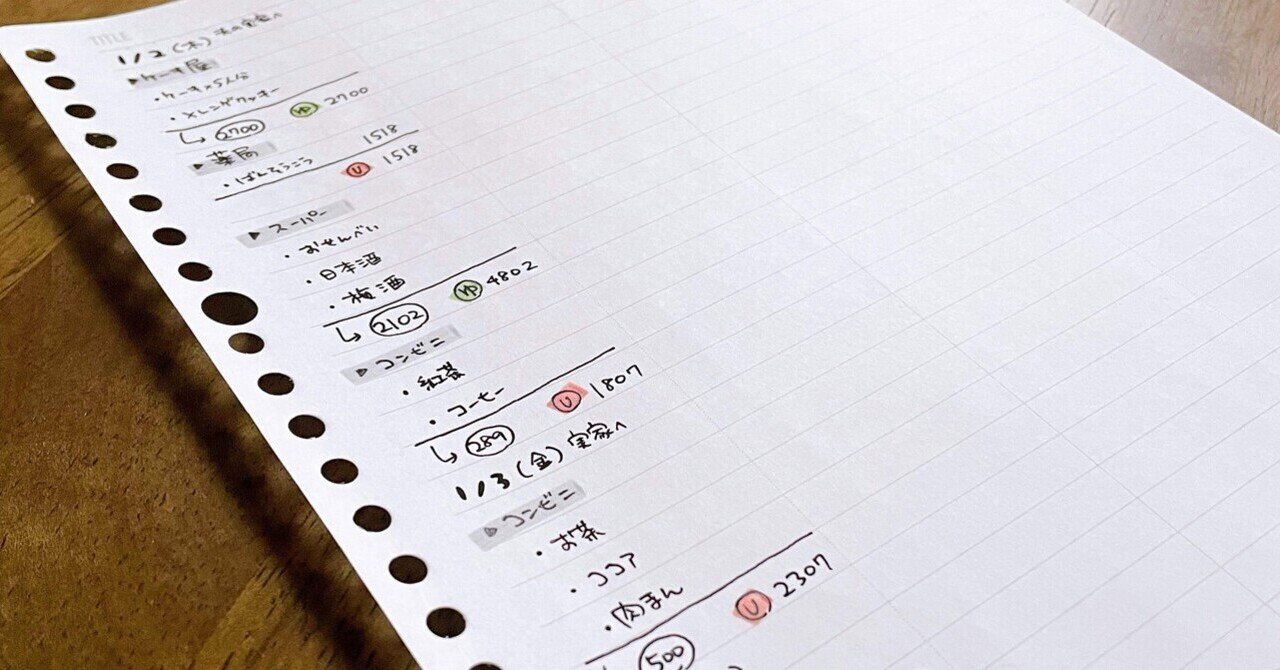 TITLE
1/2(木) 夫の実家へ
▶ケーキ屋
・ケーキ×5人分
・メレンゲクッキー
↳ 2700 ゆ 2700
▶薬局 1518
・ばんそうこう U 1518
▶スーパー
・おせんべい
・日本酒
・梅酒
↳ 2102 ゆ 4802
▶コンビニ
・紅茶
・コーヒー
↳ 289 U 1807
1/3(金) 実家へ
▶コンビニ
・お茶
・ココア
・肉まん
500 U 2307